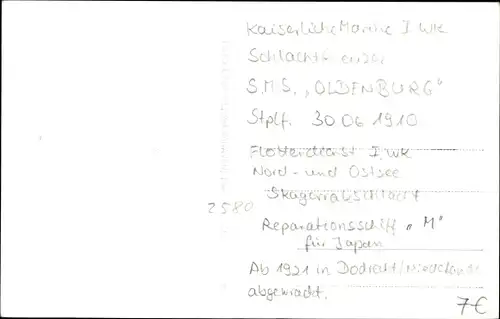 Kaiserliche Marine I WK
Schlachtkreuzer
S.M.S. „OLDENBURG“
Stplf. 30 06 1910
Flottendienst I. WK
Nord- und Ostsee
Skagerrakschlacht
2580
Reparationsschiff „M“
für Japan
Ab 1921 in Dodrecht/Niederlande
abgewrackt.
7€